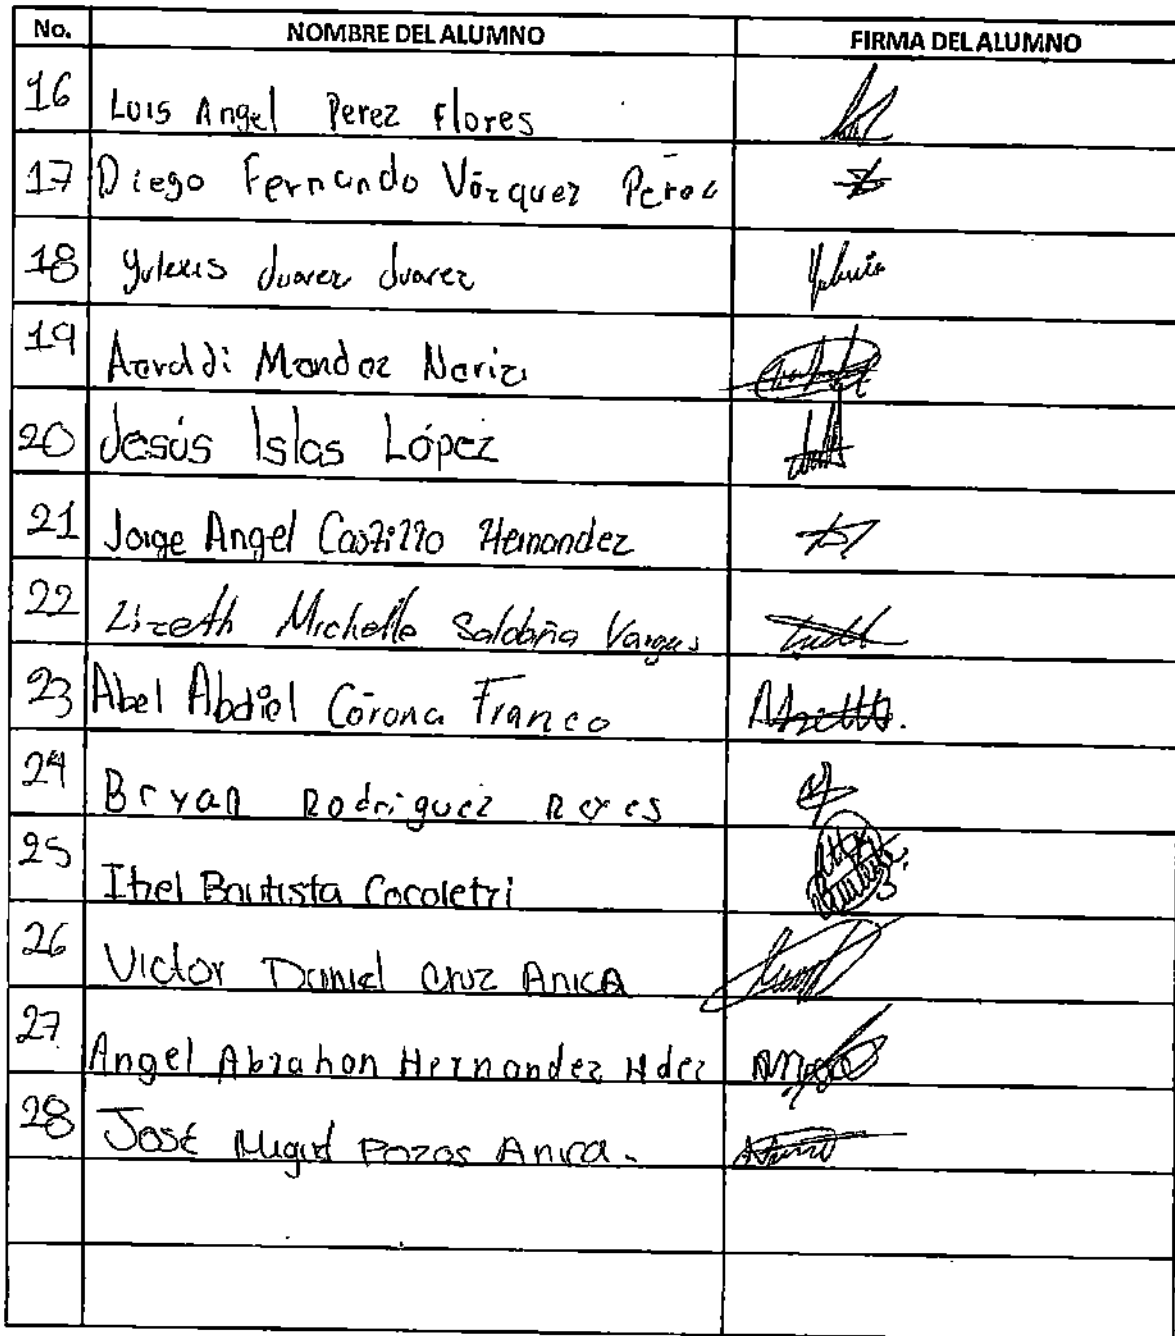 No. NOMBRE DEL ALUMNO FIRMA DEL ALUMNO
16 Luis Angel Perez Flores
17 Diego Fernando Vázquez Perez
18 Yulexis Juarez Juarez
19 Mendez
20 Jesús Islas López
21 Jorge Angel Castillo Hernandez
22 Lizeth Michelle Saldaña Vargas
23 Abel Abdiel Corona Franco
24 Bryan Rodriguez Reyes
25 Itzel Bautista Cocoletzi
26 Victor Daniel Cruz Anica
27 Angel Abrahan Hernandez Hdez
28 José Miguel Pozos Anica.